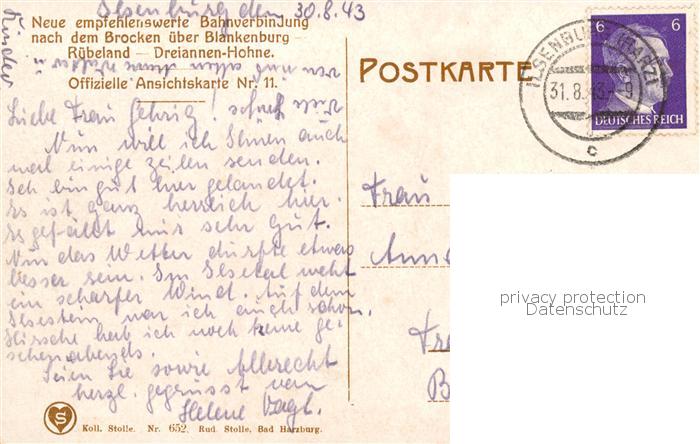 Ilsenburg den 30.8.43
Neue empfehlenswerte Bahnverbindung
nach dem Brocken über Blankenburg —
Rübeland — Dreiannen-Hohne.
Offizielle Ansichtskarte Nr. 11.
Kinder
Liebe Frau Gehrig!
Nun will ich Ihnen auch
mal einige Zeilen senden.
Ich bin gut hier gelandet.
Es ist ganz herrlich hier.
Es gefällt mir sehr gut.
Nur das Wetter dürfte etwas
besser sein. Im Ilsetal weht
ein scharfer Wind. Auf dem
Ilsestein war ich auch schon.
Hirsche hab ich noch keine ge-
sehen abends.
Seien Sie sowie Albrecht
herzl. gegrüsst von
Helene Vagt.
S
Koll. Stolle. Nr. 652. Rud. Stolle, Bad Harzburg.
POSTKARTE
ILSENBURG (HARZ)
31.8.43-9
c
6 6
DEUTSCHES REICH
Frau
privacy protection
Datenschutz